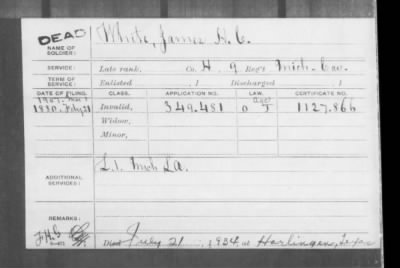 DEAD
NAME OF SOLDIER:
White, James H. C.
SERVICE:
Late rank, Co. H, 9 Reg't Mich. Cav.
TERM OF SERVICE:
Enlisted , 1 Discharged , 1
DATE OF FILING. CLASS. APPLICATION NO. LAW. CERTIFICATE NO.
1907. Mar
1880. July 21 Invalid, 349.481 1127.866
Widow,
Minor,
ADDITIONAL SERVICES:
L.1. Mich L.A.
REMARKS:
Died July 21, 1934, at Harlingen, Texas